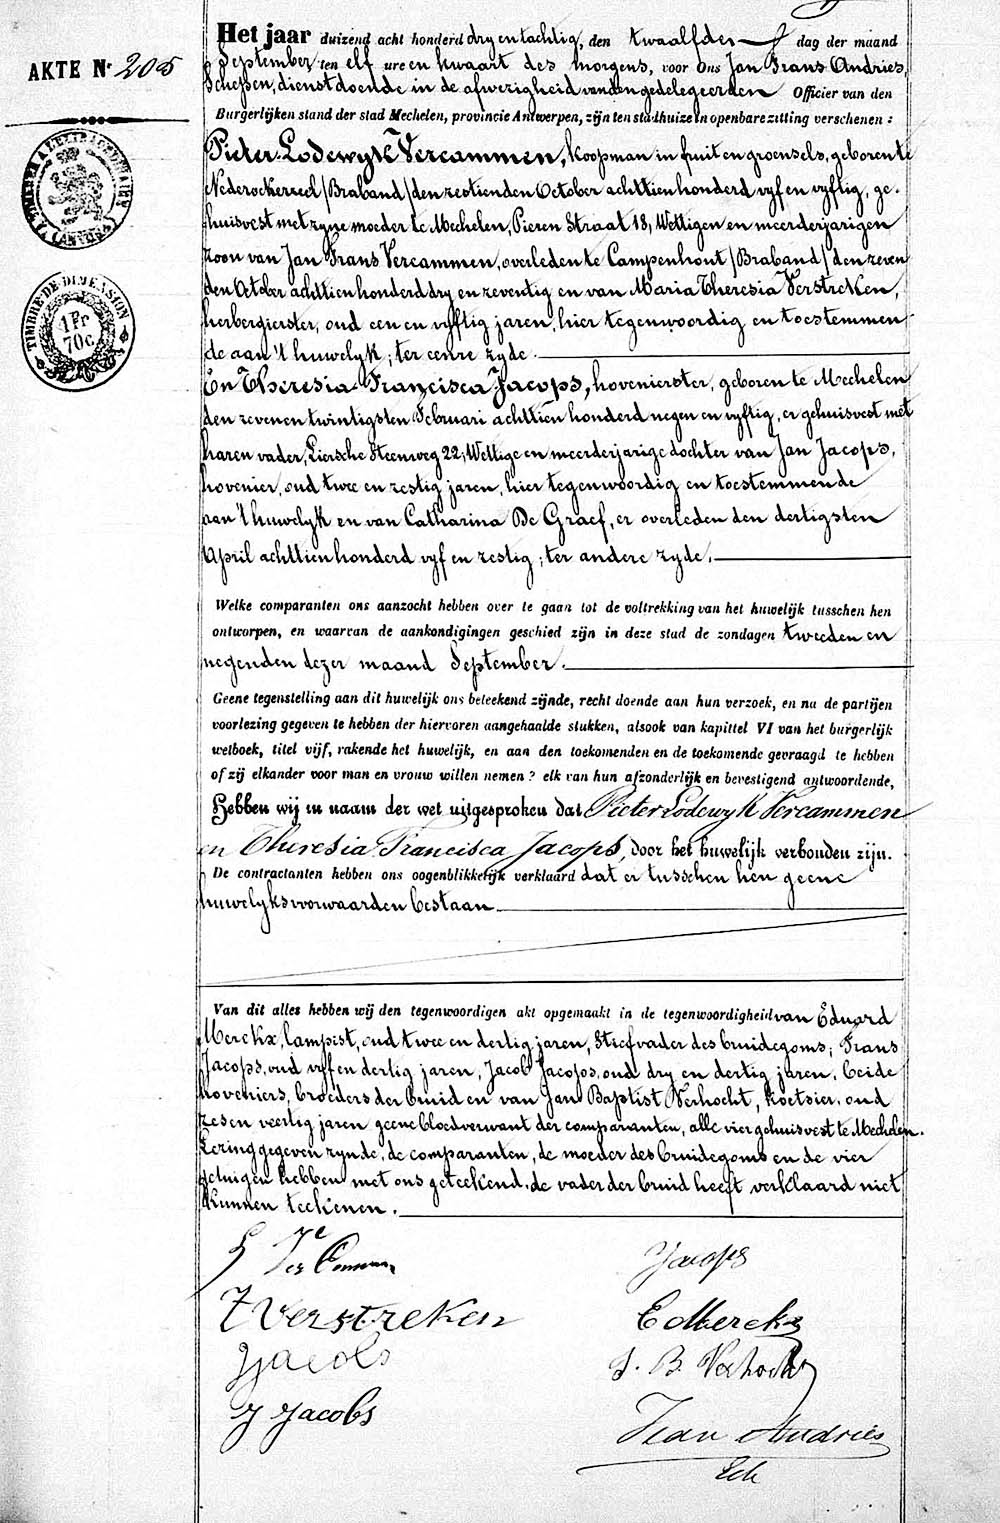 Het jaar duizend acht honderd dry en tachtig, den twaalfden dag der maand
September ten elf ure en kwaart des morgens, voor Ons Jan Frans Andries,
Schepen, dienstdoende in de afwezigheid van den gedelegeerden Officier van den
AKTE Nr 205
Burgerlijken stand der stad Mechelen, provincie Antwerpen, zijn ten stadhuize in openbare zitting verschenen :
Pieter Lodewyk Vercammen, koopman in fruit en groensels, geboren te
Nederockerzeel /Braband/ den zestienden October achttien honderd vyf en vyftig, ge-
huisvest met zyne moeder te Mechelen, Pieren Straat 18, Wettigen en meerderjarigen
zoon van Jan Frans Vercammen, overleden te Campenhout /Braband/ den zeven
den October achttien honderd dry en zeventig en van Maria Theresia Verstreken,
herbergierster, oud een en vyftig jaren, hier tegenwoordig en toestemmen
de aan 't huwelyk; ter eenre zyde.
En Theresia Francisca Jacops, hovenierster, geboren te Mechelen
den zeven en twintigsten Februari achttien honderd negen en vyftig, er gehuisvest met
haren vader, Liersche Steenweg 22, Wettige en meerderjarige dochter van Jan Jacops,
hovenier, oud twee en zestig jaren, hier tegenwoordig en toestemmende
aan 't huwelyk en van Catharina De Graef, er overleden den dertigsten
April achttien honderd vyf en zestig; ter andere zyde.
Welke comparanten ons aanzocht hebben over te gaan tot de voltrekking van het huwelijk tusschen hen
ontworpen, en waarvan de aankondigingen geschied zijn in deze stad de zondagen tweeden en
negenden dezer maand September.
Geene tegenstelling aan dit huwelijk ons beteekend zijnde, recht doende aan hun verzoek, en na de partijen
voorlezing gegeven te hebben der hiervoren aangehaalde stukken, alsook van kapittel VI van het burgerlijk
wetboek, titel vijf, rakende het huwelijk, en aan den toekomenden en de toekomende gevraagd te hebben
of zij elkander voor man en vrouw willen nemen ? elk van hun afzonderlijk en bevestigend antwoordende,
Hebben wij in naam der wet uitgesproken dat Pieter Lodewyk Vercammen
en Theresia Francisca Jacops, door het huwelijk verbonden zijn.
De contractanten hebben ons oogenblikkelijk verklaard dat er tusschen hen geene
huwelyksvoorwaarden bestaan.
Van dit alles hebben wij den tegenwoordigen akt opgemaakt in de tegenwoordigheid van Eduard
Merckx, lampist, oud twee en dertig jaren, Stiefvader des bruidegoms; Frans
Jacops, oud vyf en dertig jaren, Jacob Jacops, oud dry en dertig jaren, beide
hoveniers, broeders der bruid en van Jan Baptist Verhocht, koetsier, oud
zes en veertig jaren geene bloedverwant der comparanten, alle vier gehuisvest te Mechelen.
Lezing gegeven zynde, de comparanten, de moeder des bruidegoms en de vier
getuigen hebben met ons geteekend, de vader der bruid heeft verklaard niet
kunnen teekenen.
Jacops
Verstreken
E Merckx
Jacobs
J. B. Verhocht
J Jacobs
Jean Andries
Sch
TIMBRE DE DIMENSION
1 Fr
70c.